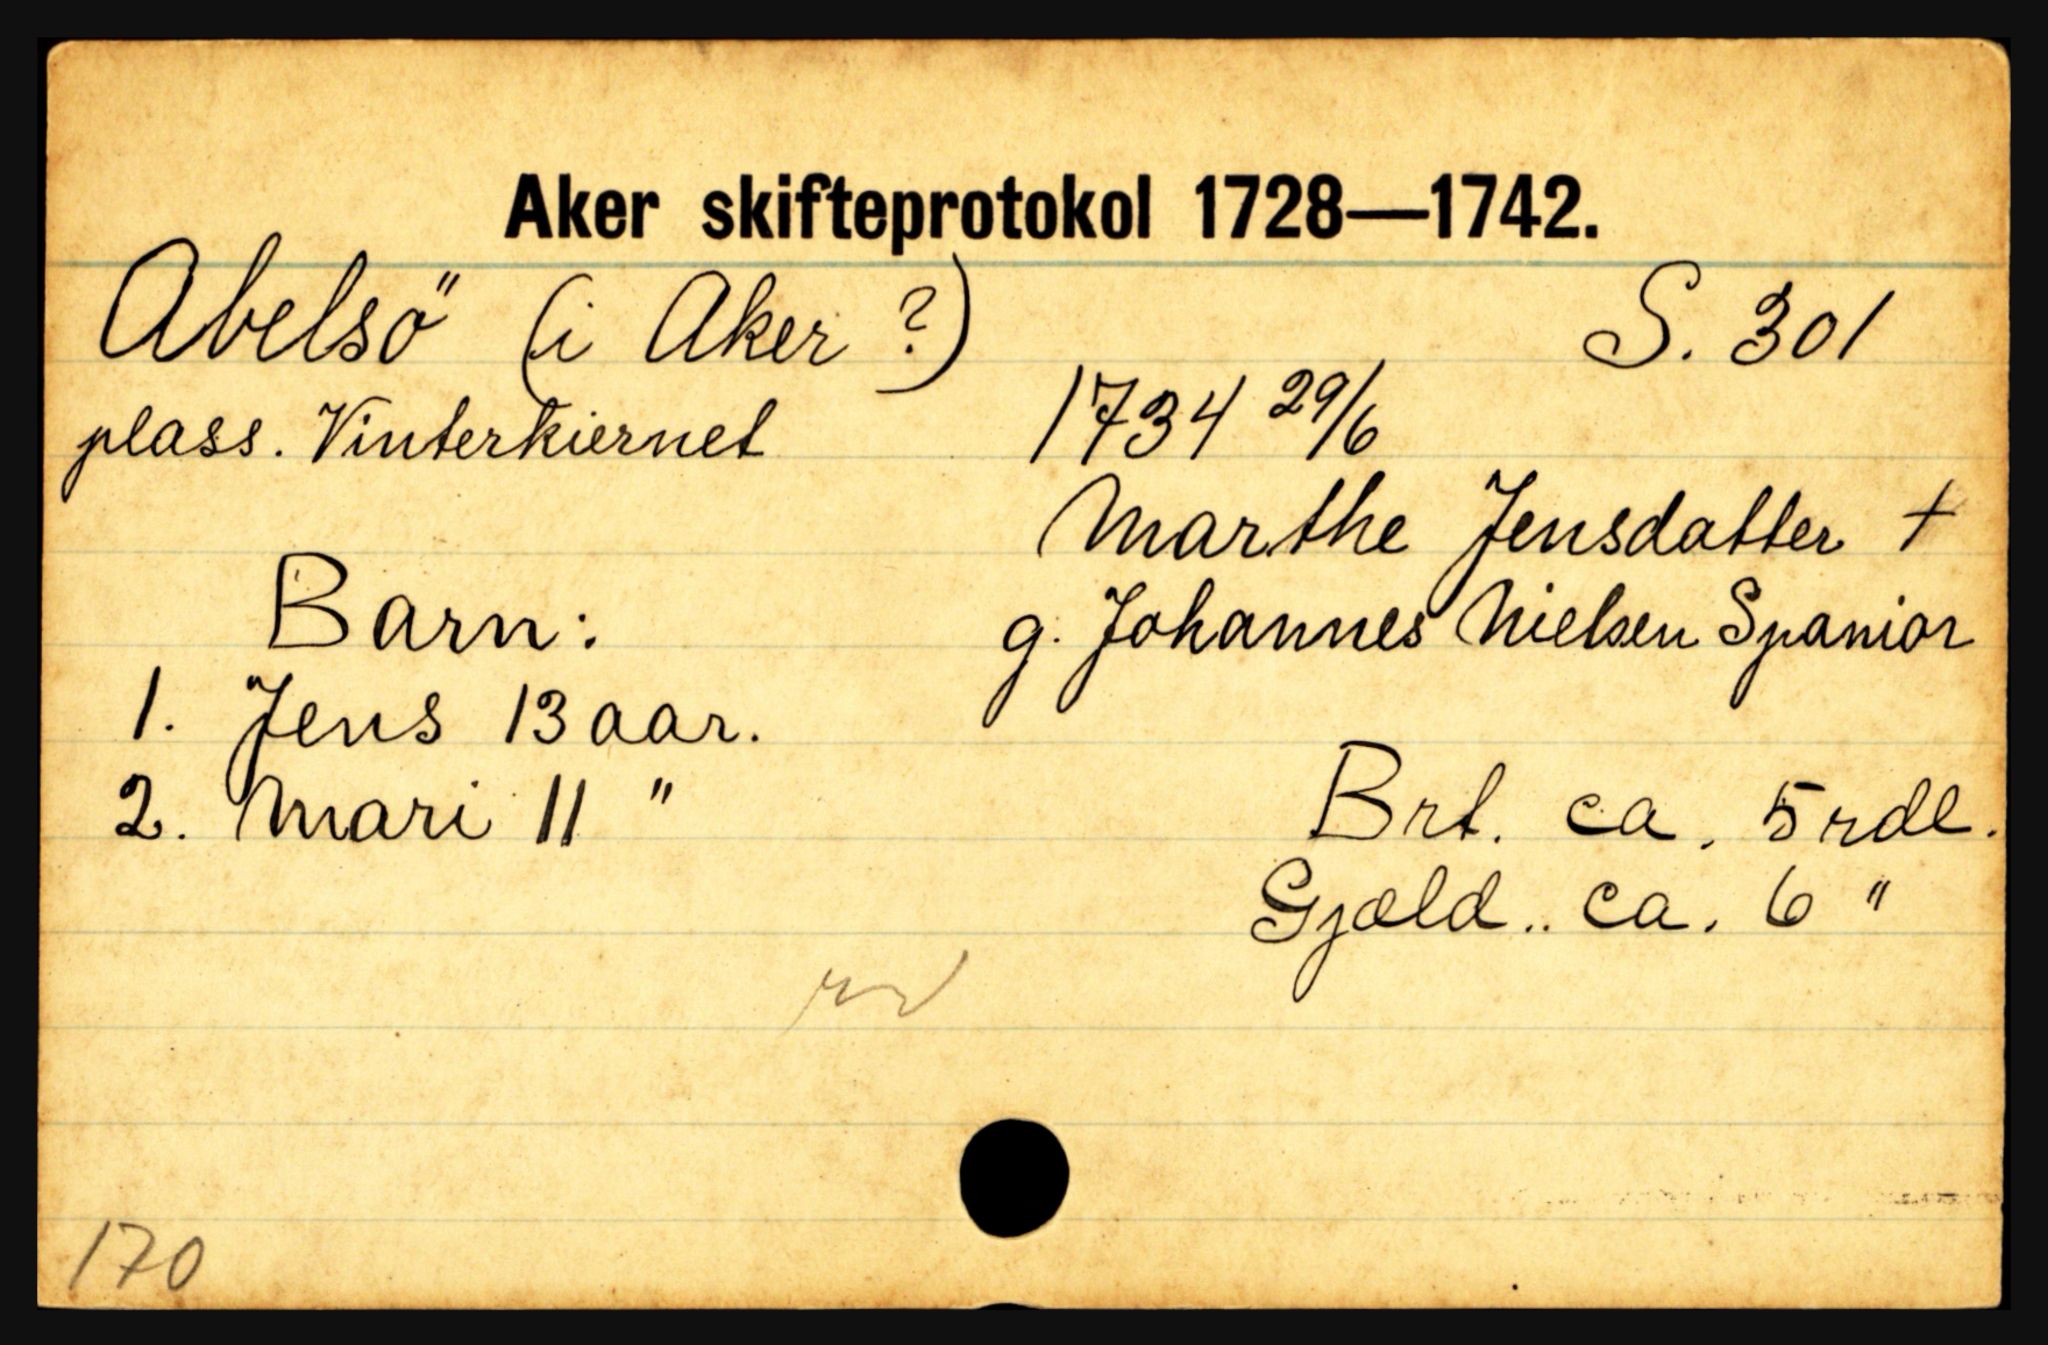 Aker skifteprotokol 1728—1742.
Abelsö (i Aker ?) S. 301
plass. Vinterkiernet 1734 29/6
Marthe Jensdatter +
Barn: g. Johannes Nielsen Spanior
1. Jens 13 aar.
2. Mari 11 " Brt. ca. 5 rdl.
Gjæld .. ca. 6 "
170